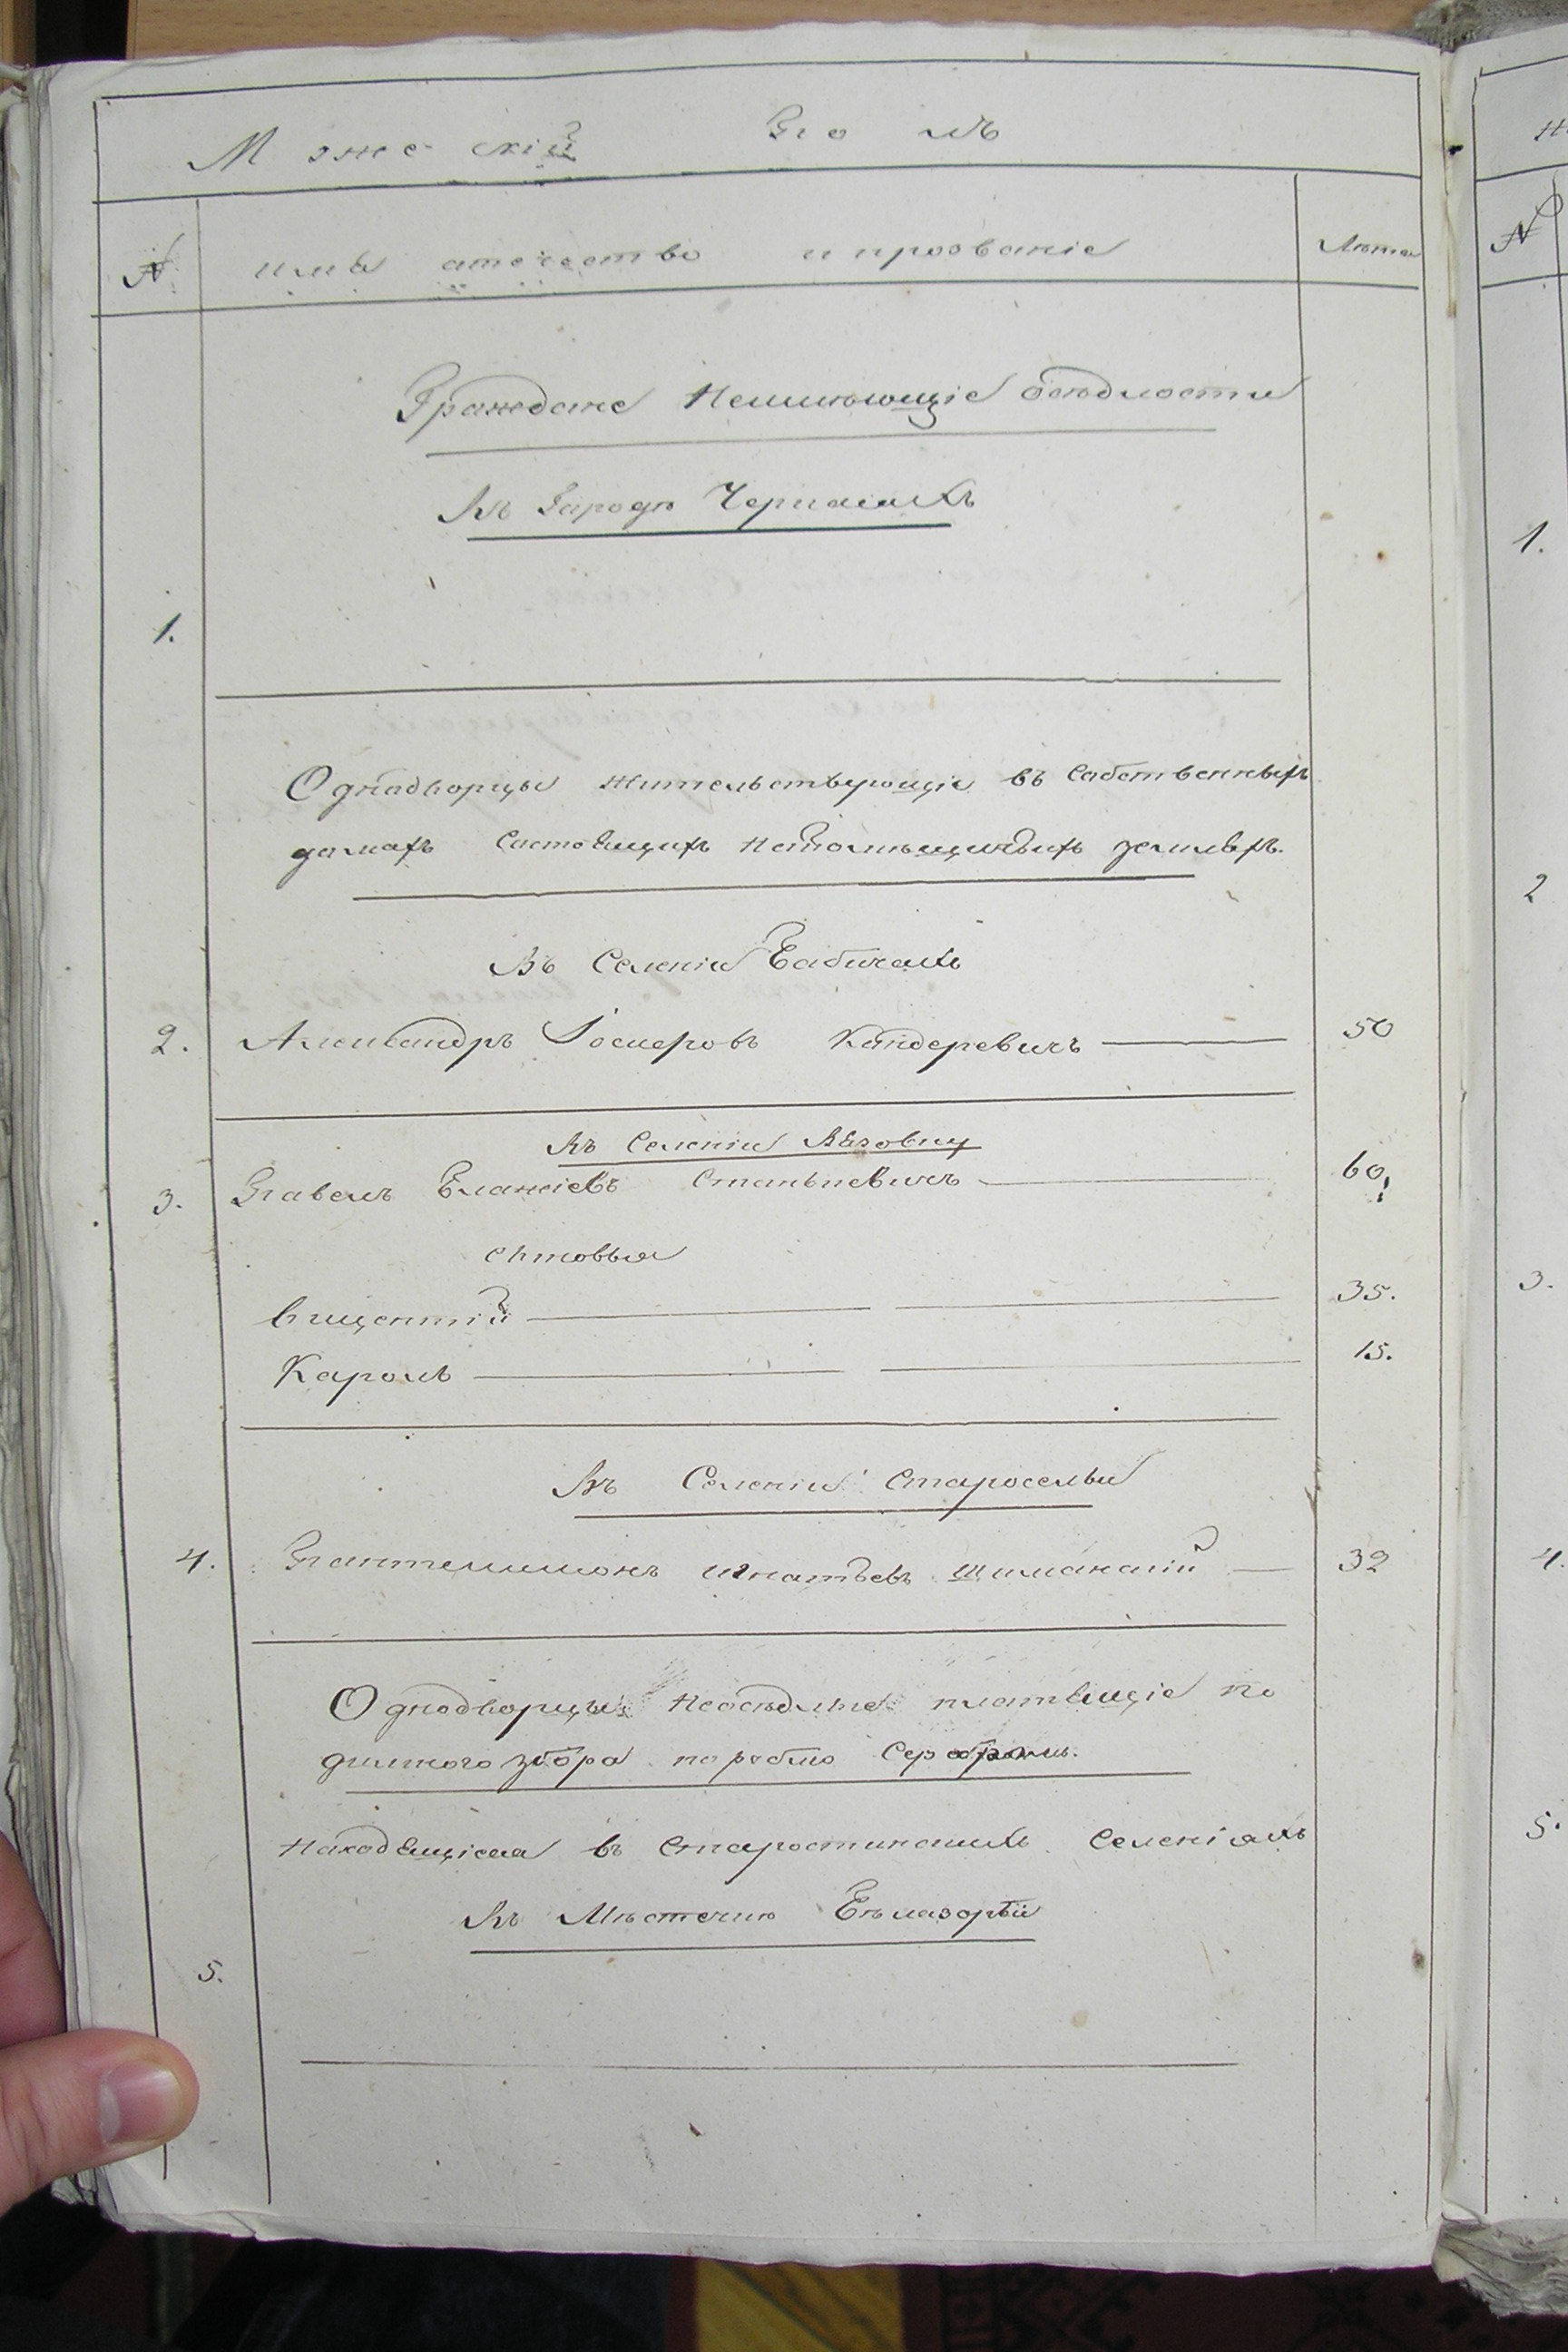 Мужескій Полъ
№ имя отечество и прозваніе Лѣта
Граждане Неимѣющіе осѣдлости
Въ Городѣ Черкасахъ
1.
Однодворцы жительствующіе въ собственныхъ
домахъ состоящихъ на помѣщичьихъ земляхъ.
Въ Селеніи Бабичахъ
2. Александръ Іосифовъ Кандеревичъ 50
Въ Селеніи Вязовку
3. Павелъ Блажіевъ Станкевичъ 60
сыновья
Викентій 35.
Кароль 15.
Въ Селеніи Старосельи
4. Пантелимонъ Игнатьевъ Шиманскій 32
Однодворцы неосѣдлые платящіе по
дымного збора по рублю серебромъ.
Находящіеся въ Старостинскихъ Селеніяхъ
Въ Мѣстечкѣ Бѣлазорьи
5.
№
1.
2
3.
4.
5.